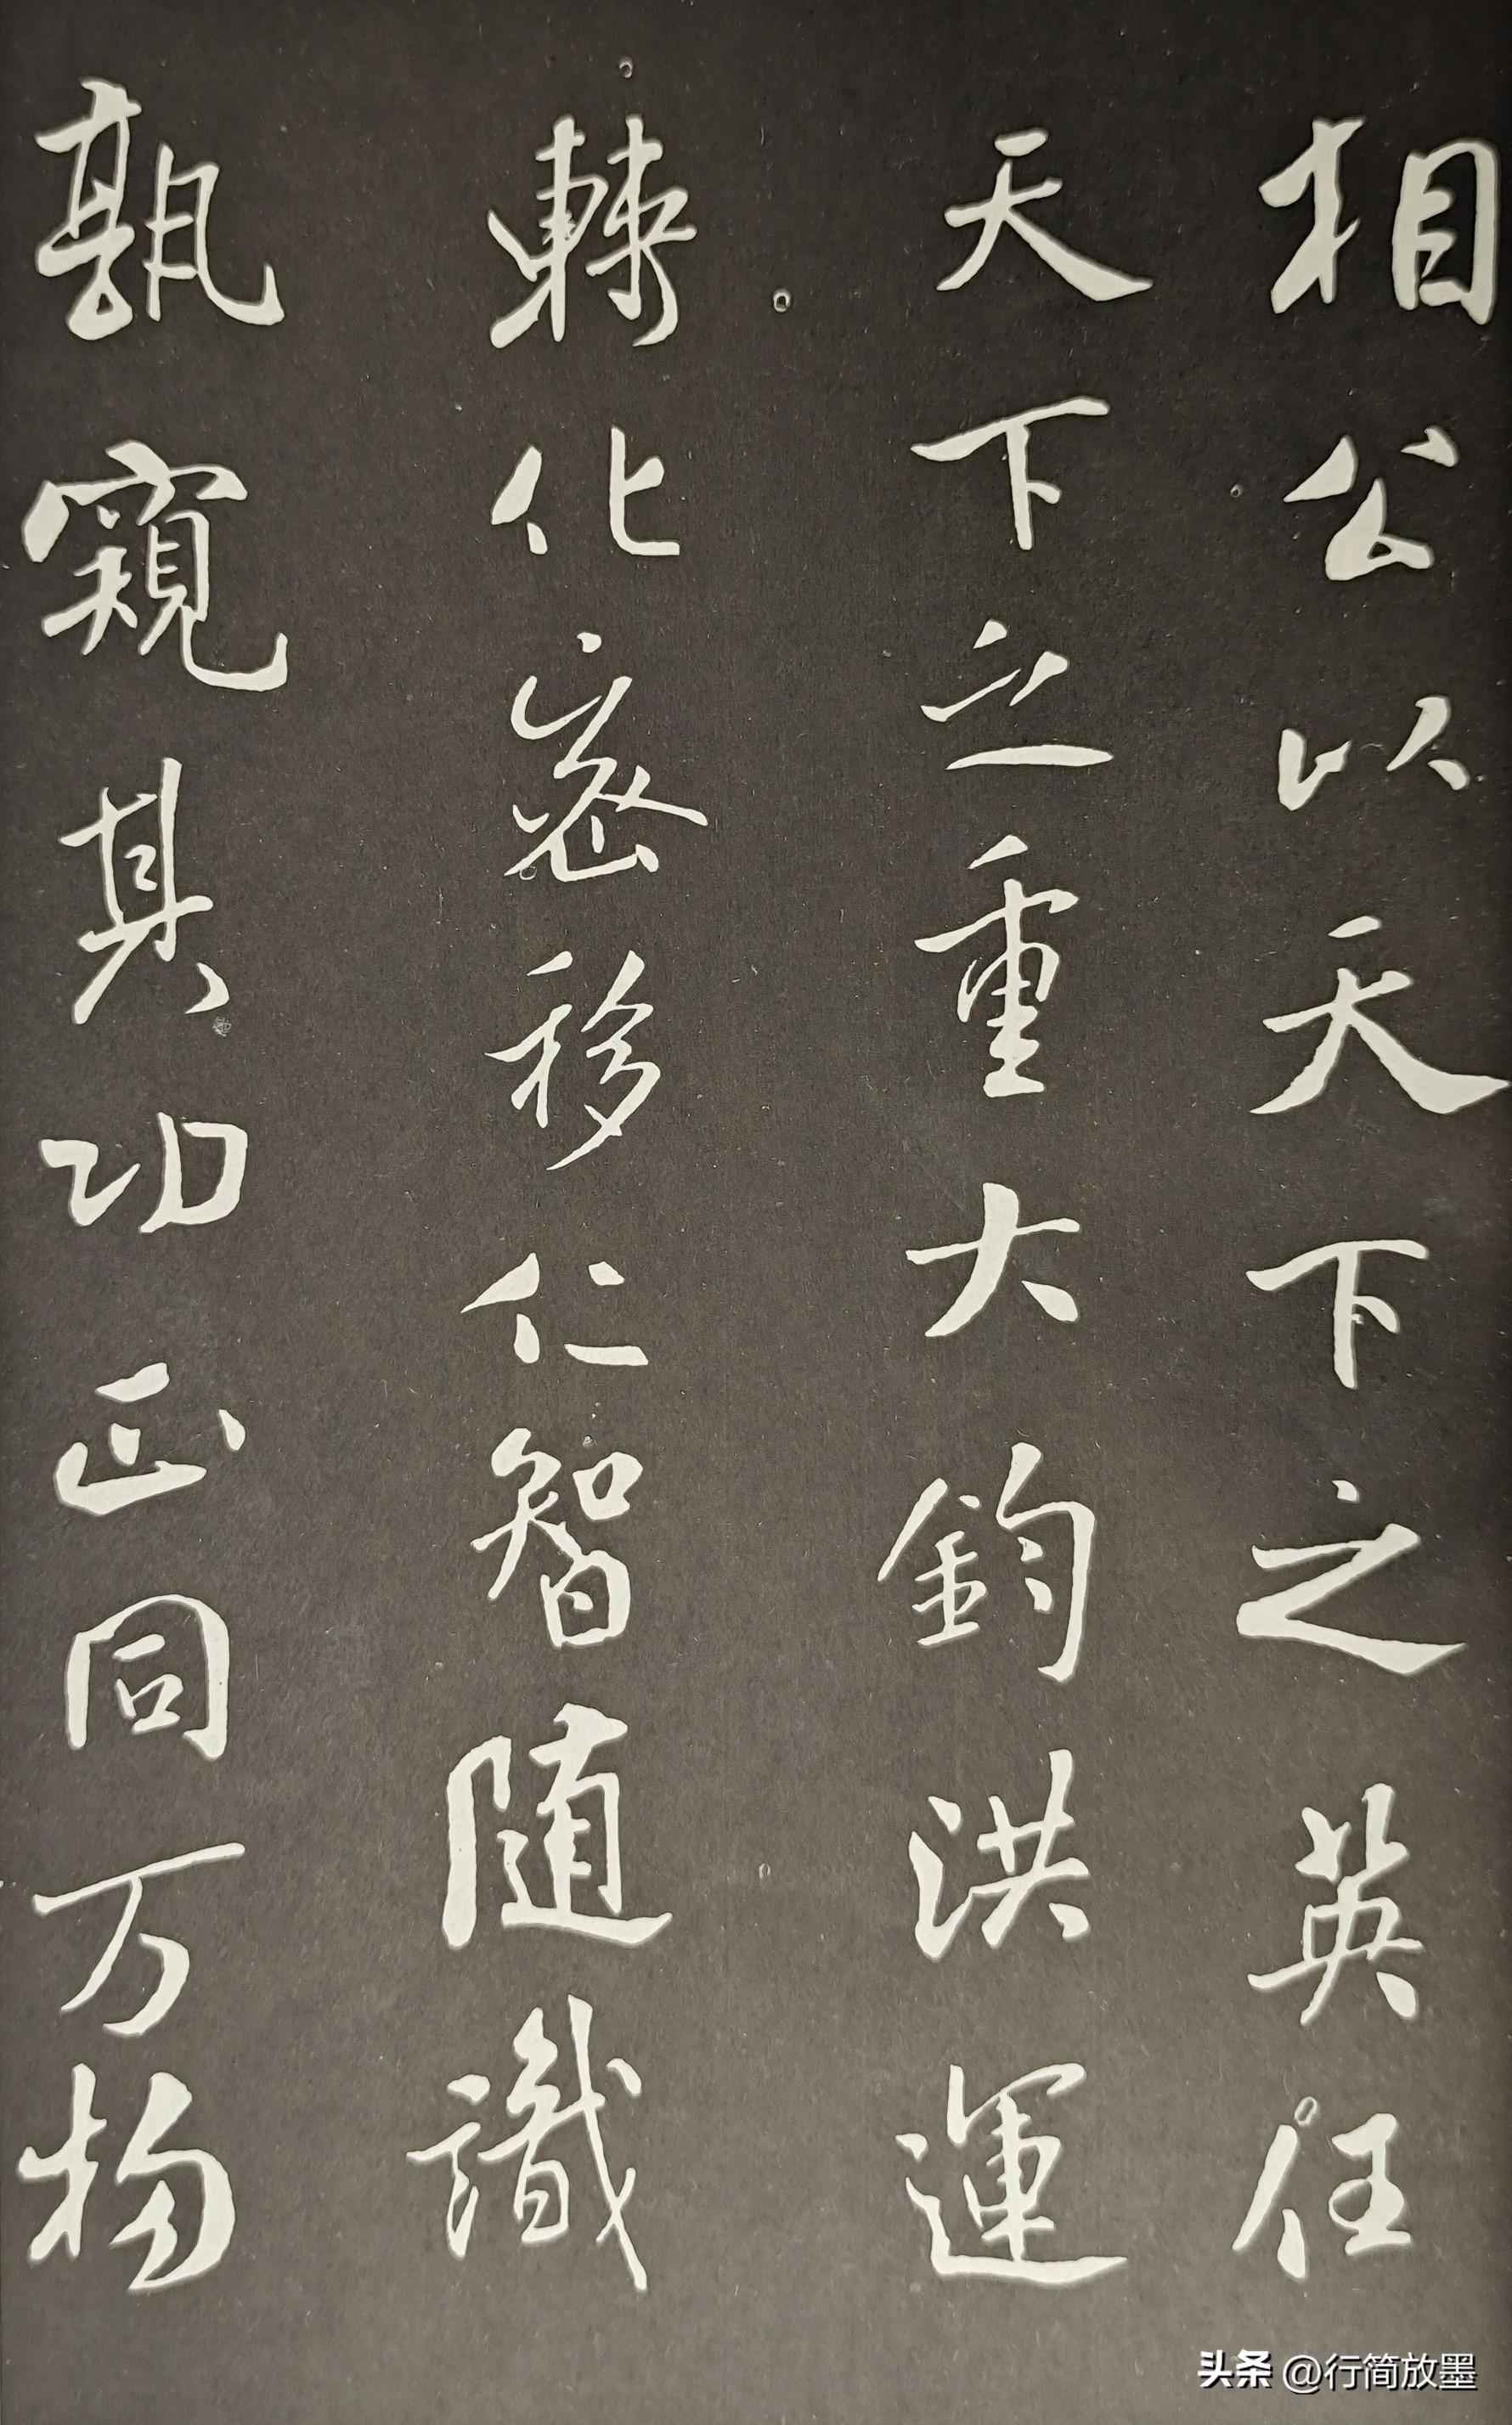 相公以天下之英任
天下之重大鈞洪運
轉化密移仁智隨識
孰窺其功正同万物
头条 @行简放墨